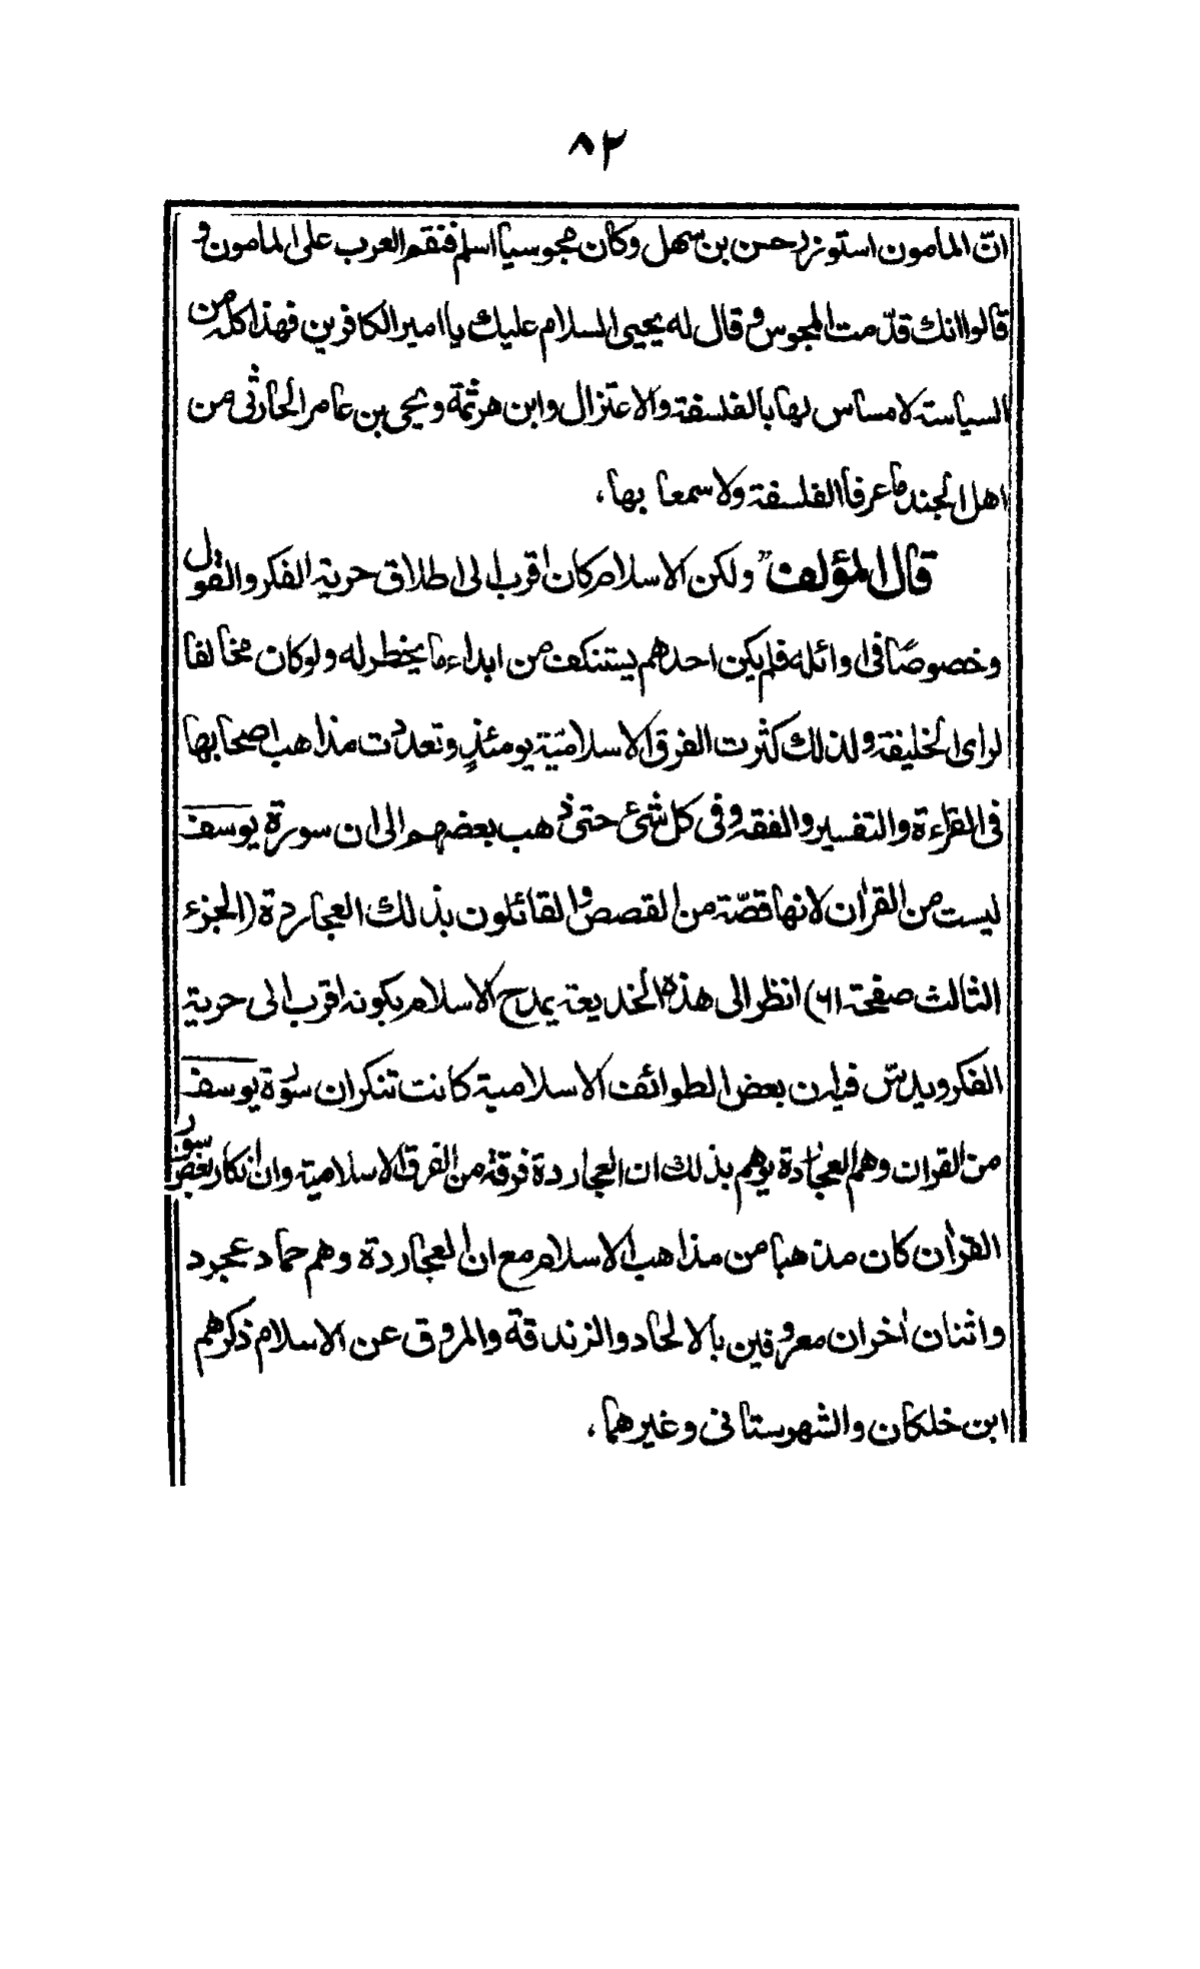 ٨٢
انّ المامون استوزر حسن بن سهل وكان مجوسيا اسلم فنقم العرب على المامون و
قالوا انك قدّمت المجوس وقال له يحيى السلام عليك يا امير الكافرين فهذا كله من
السياسة لا مساس لها بالفلسفة والاعتزال وابن هرثمة ويحيى بن عامر الحارثى من
اهل الجند ما عرفا الفلسفة ولا سمعا بها،
قال المؤلف "ولكن الاسلام كان اقرب الى اطلاق حرية الفكر والقول
وخصوصًا فى اوائله فلم يكن احدهم يستنكف من ابداء ما يخطر له ولو كان مخالفا
لراى الخليفة ولذلك كثرت الفرق الاسلاميّة يومئذٍ وتعددت مذاهب اصحابها
فى القراءة والتفسير والفقه وفى كل شئ حتى ذهب بعضهم الى ان سورة يوسف
ليست من القرأن لانها قصّة من القصص والقائلون بذلك العجاردة (الجزء
الثالث صفحة ٦١) انظر الى هذه الخديعة يمدح الاسلام بكونه اقرب الى حرية
الفكر ويدسّ فيه ان بعض الطوائف الاسلامية كانت تنكر ان سورة يوسف
من القران وهم العجاردة يوهم بذلك ان العجاردة فرقة من الفرق الاسلامية وان انكار بعض سور
القرأن كان مذهبا من مذاهب الاسلام مع ان العجاردة وهم حماد عجرد
واثنان أخران معروفين بالالحاد والزندقة والمروق عن الاسلام ذكرهم
ابن خلكان والشهرستانى وغيرهما،